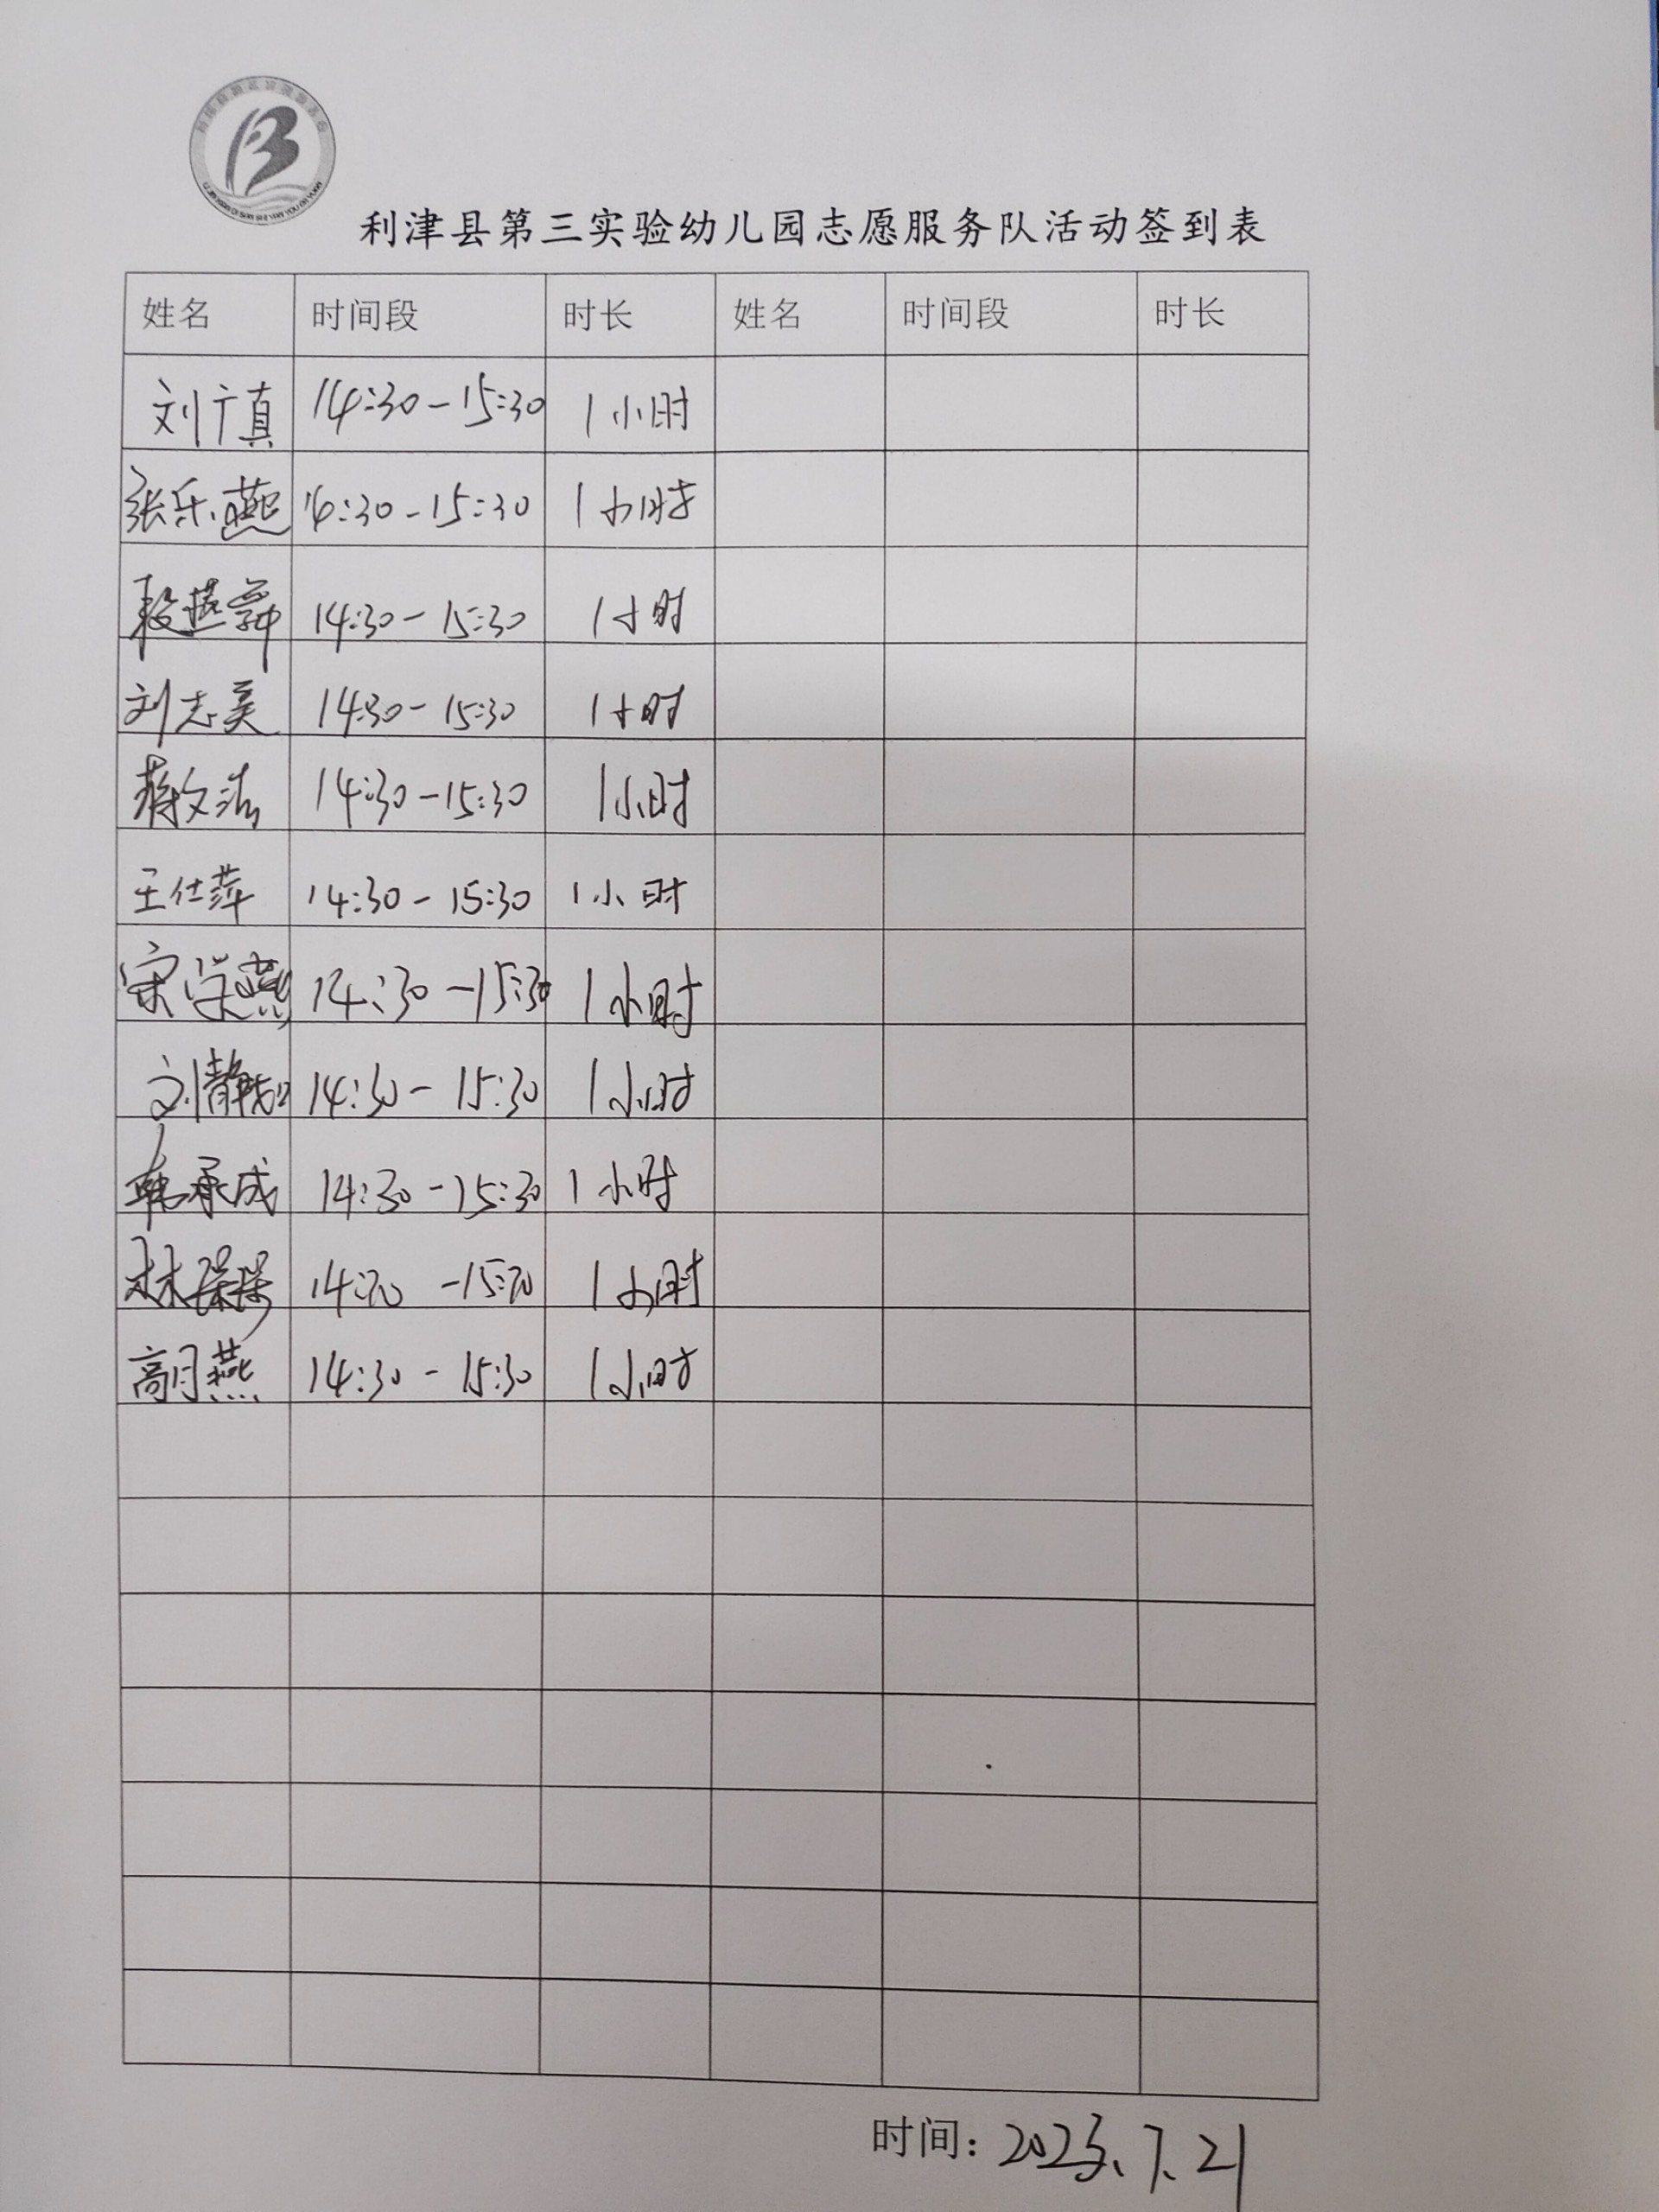 利津县第三实验幼儿园志愿服务队活动签到表
姓名 时间段 时长 姓名 时间段 时长
刘广真 14:30-15:30 1小时
张乐燕 14:30-15:30 1小时
段燕舞 14:30-15:30 1小时
刘志美 14:30-15:30 1小时
蒋文洁 14:30-15:30 1小时
王仕萍 14:30-15:30 1小时
宋学燕 14:30-15:30 1小时
刘静 14:30-15:30 1小时
韩承成 14:30-15:30 1小时
林 14:30-15:30 1小时
高月燕 14:30-15:30 1小时
时间: 2023.7.21